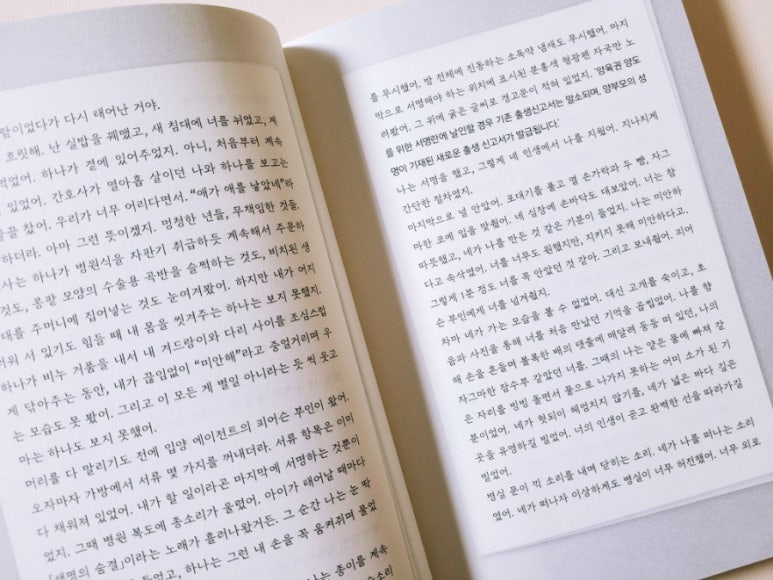 말이었다가 다시 태어난 거야.
흐릿해. 난 실밥을 꿰맸고, 새 침대에 너를 뉘었고, 계
먹었어. 하나가 곁에 있어주었지. 아니, 처음부터 계속
있었어. 간호사가 열아홉 살이던 나와 하나를 보고는
을 찼어. 우리가 너무 어리다면서. “애가 애를 낳았네”라
하더라. 아마 그런 뜻이겠지. 멍청한 년들, 무책임한 것들.
사는 하나가 병원식을 자판기 취급하듯 계속해서 주문하
것도, 콩팥 모양의 수술용 곡반을 슬쩍하는 것도, 비치된 생
대를 주머니에 집어넣는 것도 눈여겨봤어. 하지만 내가 어지
러워 서 있기도 힘들 때 내 몸을 씻겨주는 하나는 보지 못했지.
하나가 비누 거품을 내서 내 겨드랑이와 다리 사이를 조심스럽
게 닦아주는 동안, 내가 끊임없이 “미안해”라고 중얼거리며 우
는 모습도 못 봤어. 그리고 이 모든 게 별일 아니라는 듯 씩 웃고
마는 하나도 보지 못했어.
머리를 다 말리기도 전에 입양 에이전트의 피어슨 부인이 왔어.
오자마자 가방에서 서류 몇 가지를 꺼내더라. 서류 항목은 이미
다 채워져 있었어. 내가 할 일이라곤 마지막에 서명하는 것뿐이
었지. 그때 병원 복도에 종소리가 울렸어. 아이가 태어날 때마다
「생명의 숨결」이라는 노래가 흘러나왔거든. 그 순간 나는 눈 딱
들었고, 하나는 그런 내 손을 꼭 움켜쥐며 물었
나는 종이를 계속
를 무시했어. 방 전체에 진동하는 소독약 냄새도 무시했어. 마지
막으로 서명해야 하는 위치에 표시된 분홍색 형광펜 자국만 노
려봤어. 그 위에 굵은 글씨로 경고문이 적혀 있었지. ‘양육권 양도
를 위한 서명란에 날인할 경우 기존 출생신고서는 말소되며, 양부모의 성
명이 기재된 새로운 출생 신고서가 발급됩니다.’
나는 서명을 했고, 그렇게 네 인생에서 나를 지웠어. 지나치게
간단한 절차였지.
마지막으로 널 안았어. 포대기를 풀고 열 손가락과 두 뺨, 자그
마한 코에 입을 맞췄어. 네 심장에 손바닥도 대보았어. 너는 참
따뜻했고, 네가 나를 만든 것 같은 기분이 들었지. 나는 미안하
다고 속삭였어. 너를 너무도 원했지만, 지키지 못해 미안하다고.
그렇게 1분 정도 너를 꼭 안았던 것 같아. 그리고 보내줬어. 피어
슨 부인에게 너를 넘겨줬지.
차마 네가 가는 모습을 볼 수 없었어. 대신 고개를 숙이고, 초
음파 사진을 통해 너를 처음 만났던 기억을 곱씹었어. 나를 향
해 손을 흔들며 볼록한 배의 탯줄에 매달려 둥둥 떠 있던, 나의
자그마한 잠수부 같았던 너를. 그때의 나는 얕은 물에 빠져 같
은 자리를 빙빙 돌면서 물으로 나가지 못하는 어미 소가 된 기
분이었어. 네가 헛되이 헤엄치지 않기를, 네가 넓은 바다 깊은
곳을 유영하길 빌었어. 너의 인생이 곧고 완벽한 선을 따라가길
빌었어.
병실 문이 끽 소리를 내며 닫히는 소리. 네가 나를 떠나는 소리
였어. 네가 떠나자 이상하게도 병실이 너무 허전했어. 너무 외로